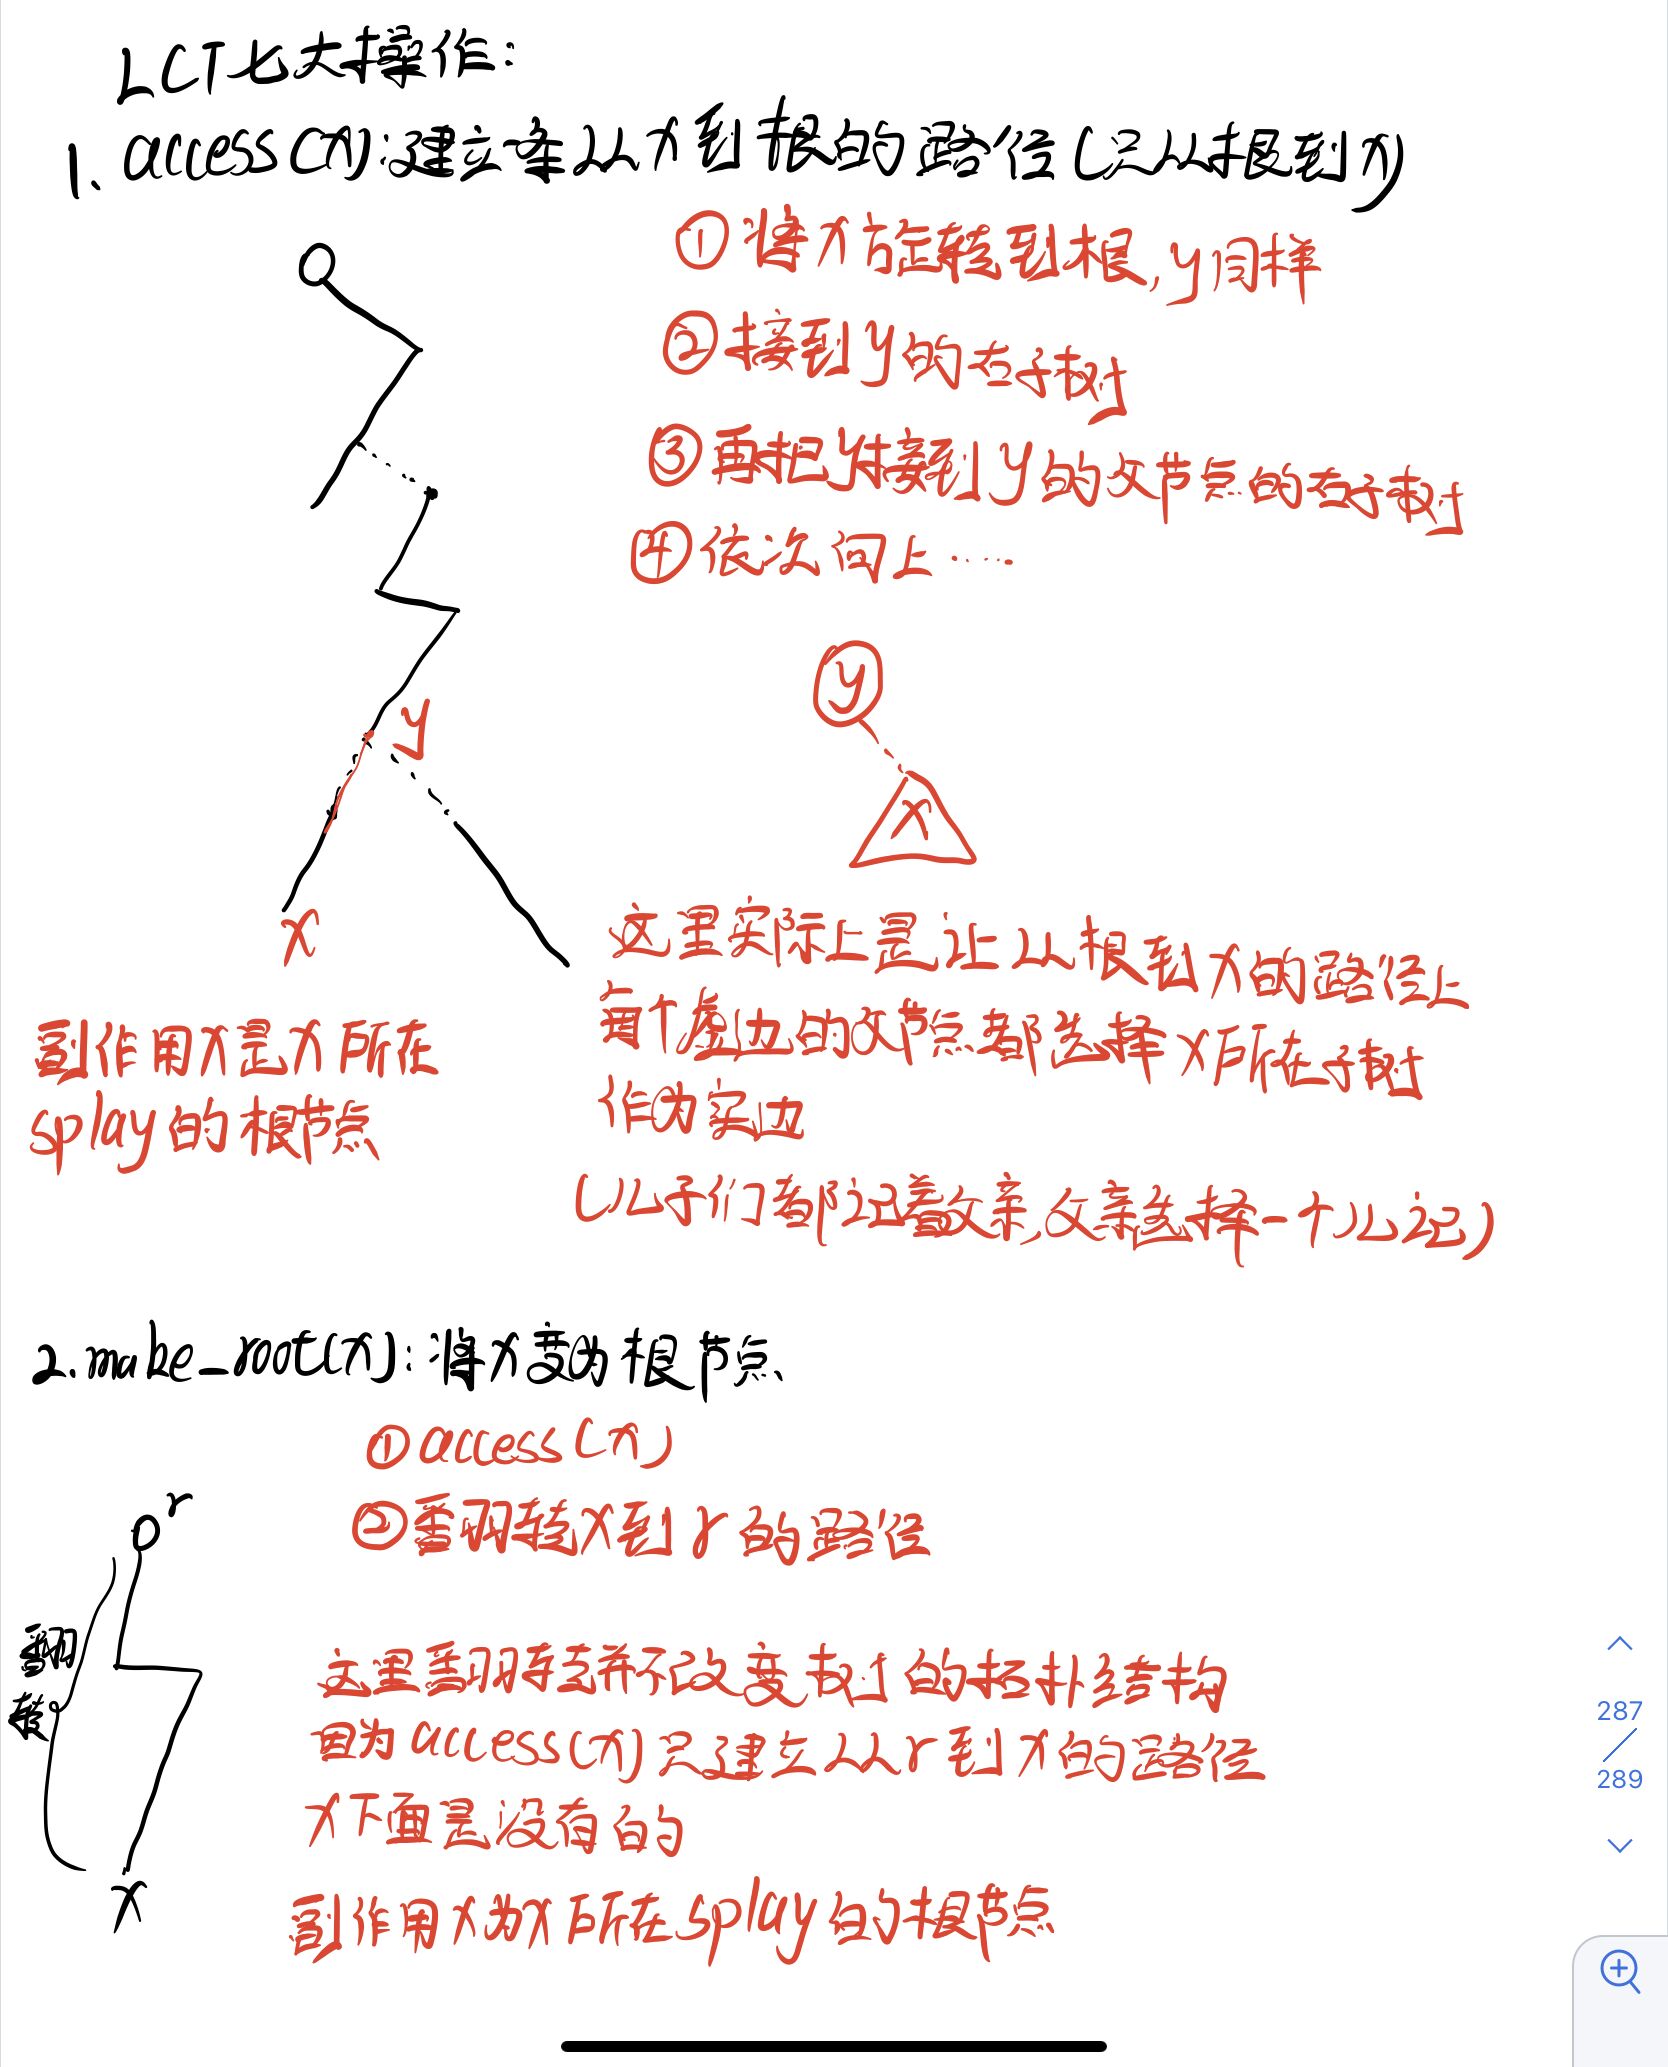 LCT七大操作:
1. access(x):建立一条从x到根的路径(只从根到x)
①将x旋转到根,y同样
②接到y的右子树
③再把y接到y的父节点的右子树
④依次向上……
y
y
x
x
这里实际上是让从根到x的路径上
每个虚边的父节点都选择x所在子树
作为实边
(儿子们都记着父亲,父亲选择一个儿记)
副作用x是x所在
splay的根节点
2.make_root(x):将x变为根节点
①access(x)
②翻转x到r的路径
r
翻
转
x
这里翻转并不改变树的拓扑结构
因为access(x)只建立从r到x的路径
x下面是没有的
副作用x为x所在splay的根节点
287
289